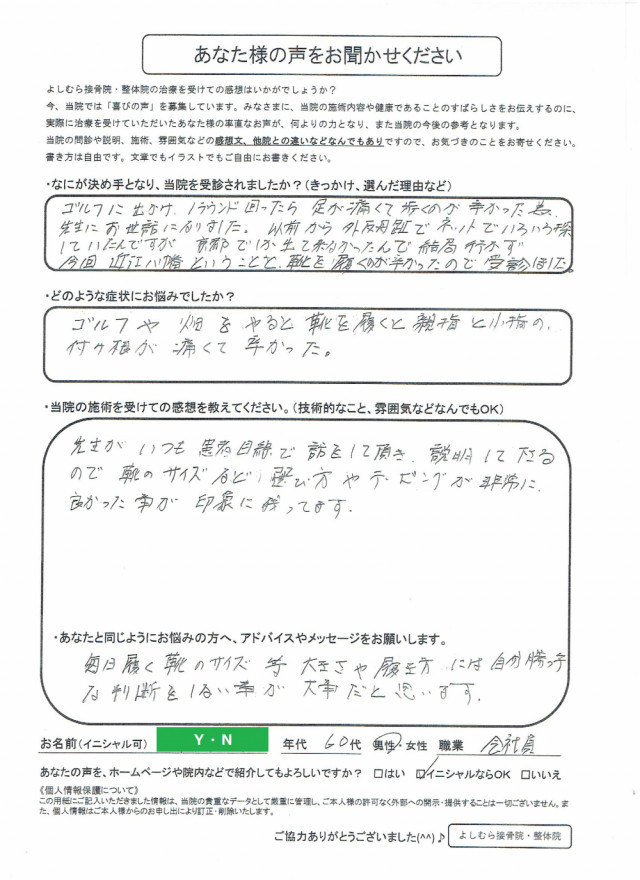 あなた様の声をお聞かせください
よしむら接骨院・整体院の治療を受けての感想はいかがでしょうか？
今、当院では「喜びの声」を募集しています。みなさまに、当院の施術内容や健康であることのすばらしさをお伝えするのに、
実際に治療を受けていただいたあなた様の率直なお声が、何よりの力となり、また当院の今後の参考となります。
当院の問診や説明、施術、雰囲気などの感想文、他院との違いなどなんでもありですので、お気づきのことをお寄せください。
書き方は自由です。文章でもイラストでもご自由にお書きください。
・なにが決め手となり、当院を受診されましたか？（きっかけ、選んだ理由など）
ゴルフに出かけ、1ラウンド回ったら足が痛くて歩くのが辛かった為、
先生にお世話になりました。以前から外反母趾でネットでいろいろ探
していたんですが京都でしか出て来なかったんで結局行かず
今回近江八幡ということと、靴を履くのが辛かったので受診しました。
・どのような症状にお悩みでしたか？
ゴルフや畑をやると靴を履くと親指と小指の、
付け根が痛くて辛かった。
・当院の施術を受けての感想を教えてください。（技術的なこと、雰囲気などなんでもOK）
先生がいつも患者目線で話をして頂き、説明して下さる
ので靴のサイズなど選び方やテーピングが非常に、
良かった事が印象に残ってます。
・あなたと同じようにお悩みの方へ、アドバイスやメッセージをお願いします。
毎日履く靴のサイズ等大きさや履き方には自分勝手
な判断をしない事が大事だと思います。
お名前（イニシャル可） Y・N 年代 60代 男性・女性 職業 会社員
あなたの声を、ホームページや院内などで紹介してもよろしいですか？ □はい ☑イニシャルならOK □いいえ
《個人情報保護について》
この用紙にご記入いただきました情報は、当院の貴重なデータとして厳重に管理し、ご本人様の許可なく外部への開示・提供することは一切ございません。ま
た、個人情報はご本人様からのお申し出により訂正・削除いたします。
ご協力ありがとうございました(^^)♪ よしむら接骨院・整体院